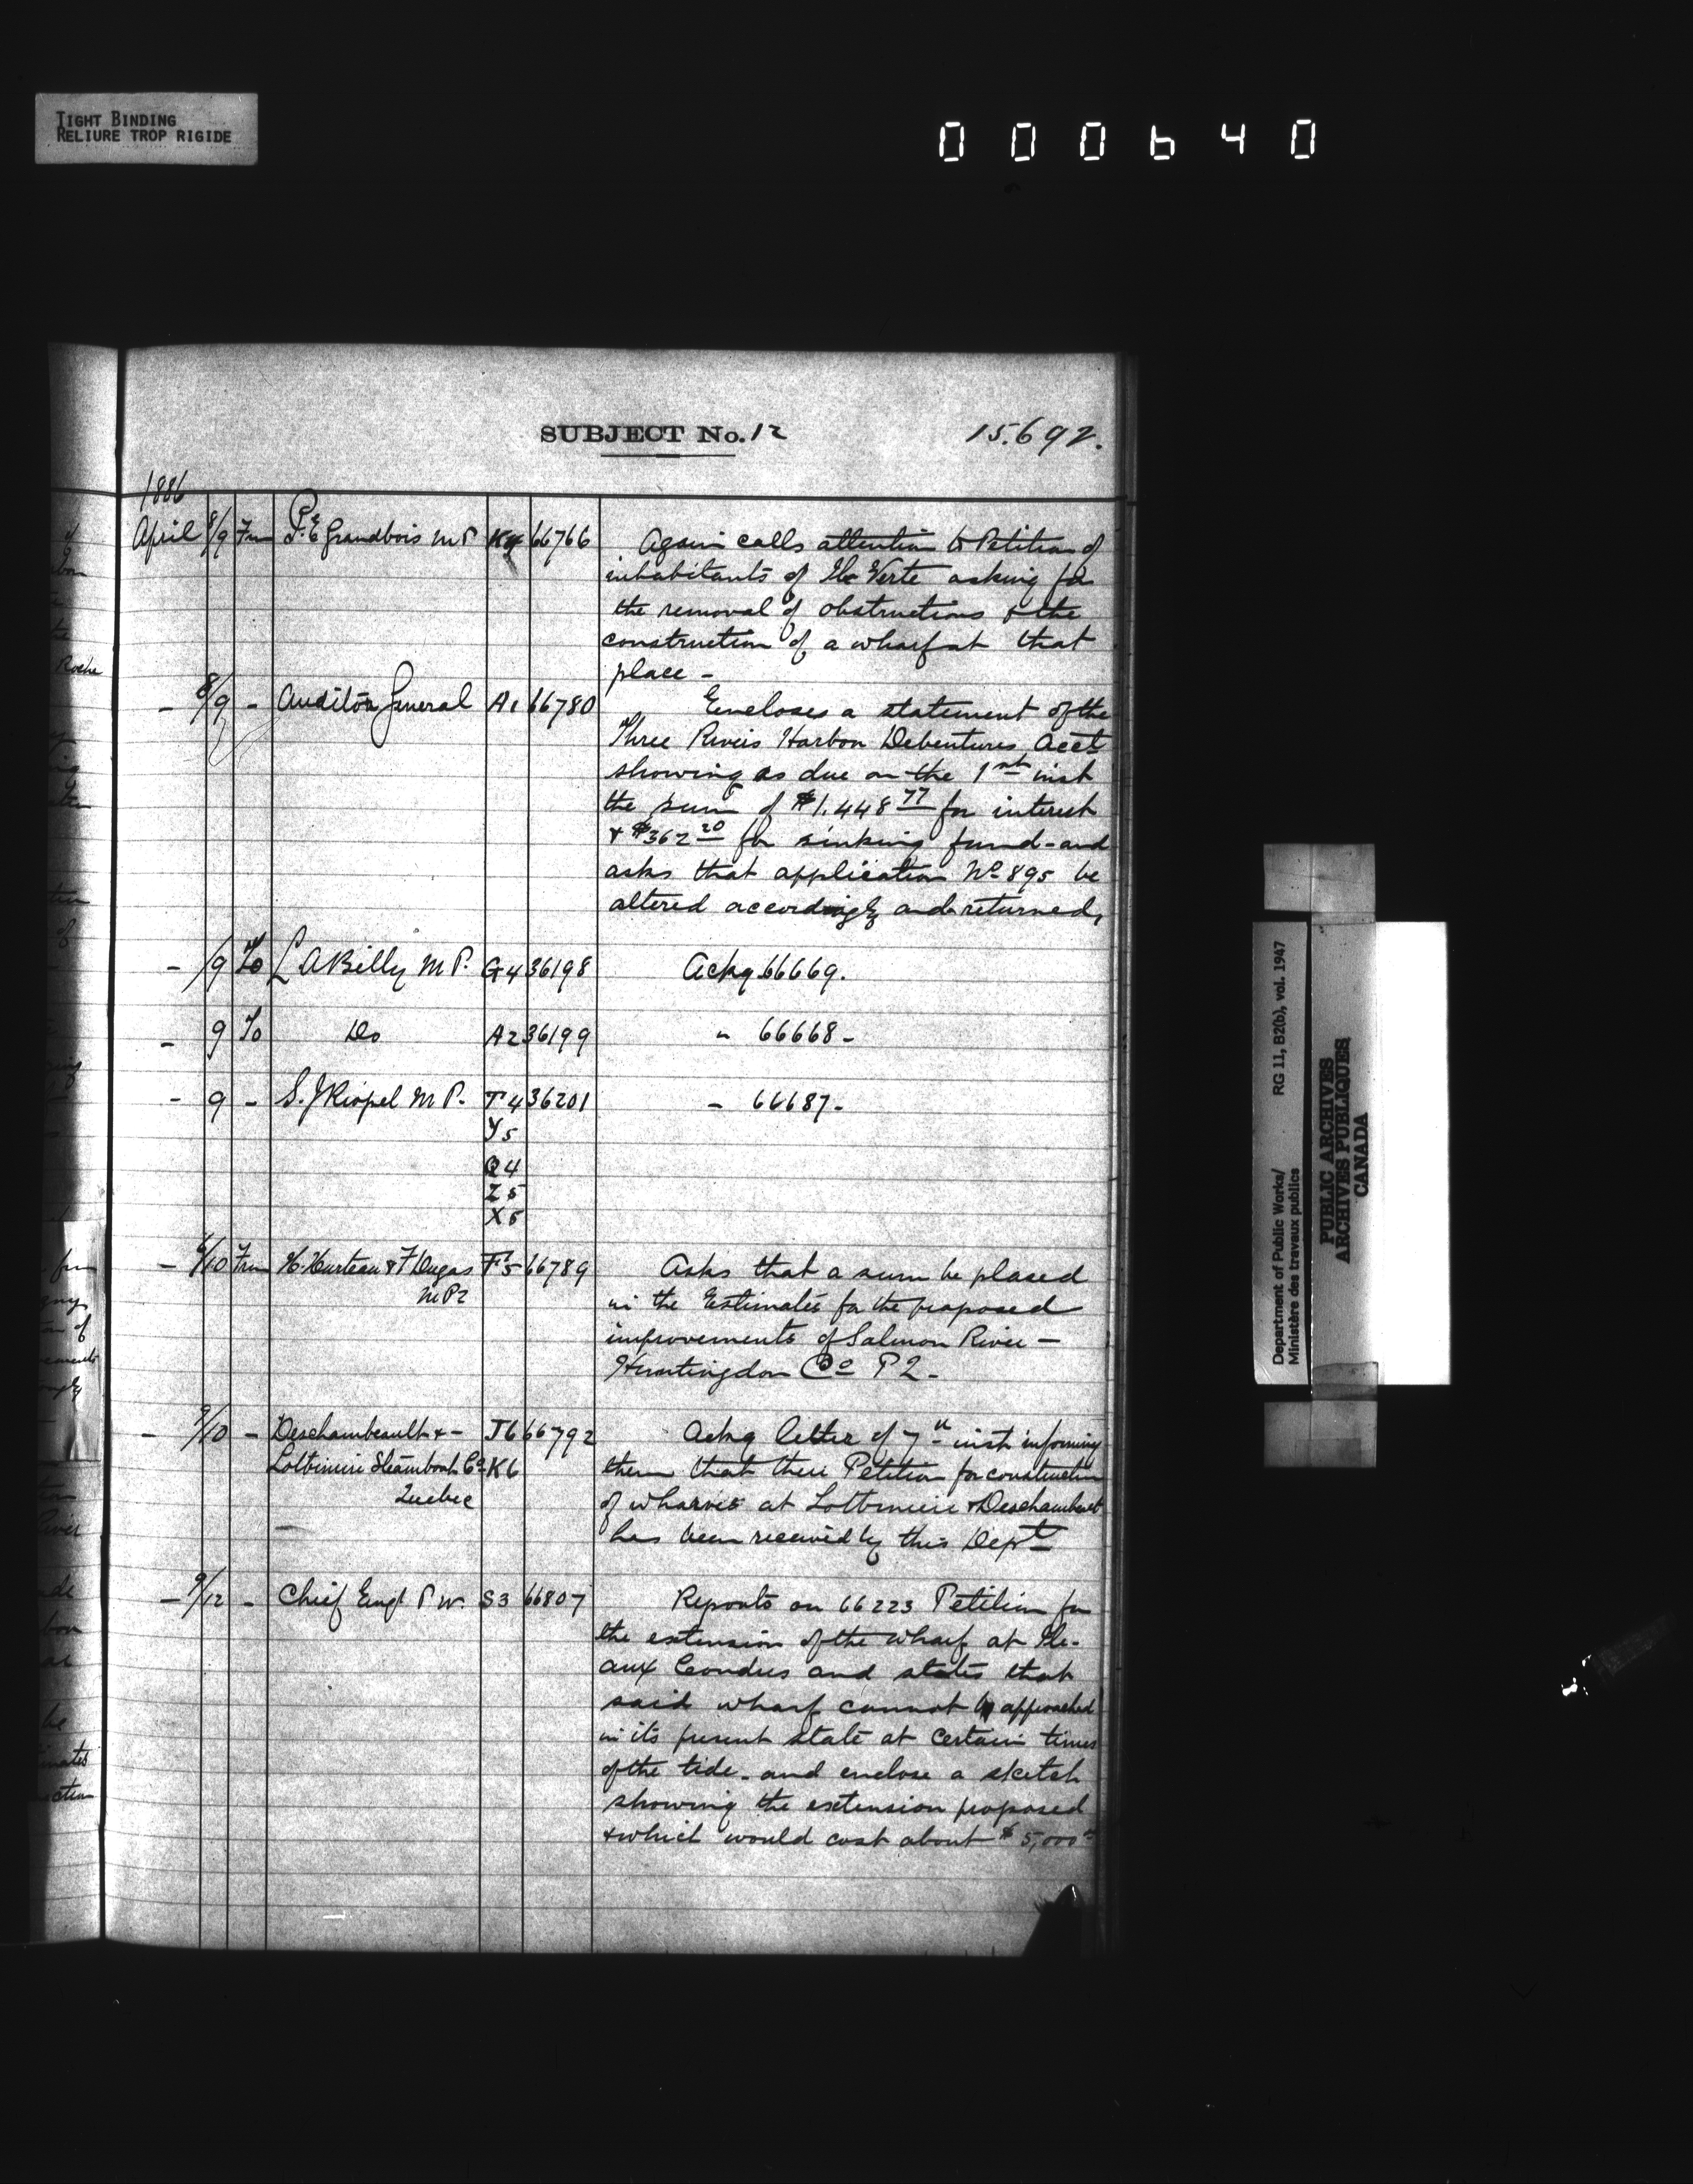 TIGHT BINDING
RELIURE TROP RIGIDE
000640
SUBJECT No. 12 15.692.
1886
April 8/9 Frm P. E. Grandbois M P 66766 Again calls attention to Petition of
inhabitants of Ile Verte asking for
the removal of obstructions & the
construction of a wharf at that
place -
- 8/9 - Auditor General A1 66780 Encloses a statement of the
Three Rivers Harbor Debentures Acct
showing as due on the 1st inst
the sum of $1.448 77 for interest
& $362 20 for sinking fund - and
asks that application No 895 be
altered accordingly and returned,
- /9 To L A Billy M P. G4 36198 Ackg 66669.
- 9 To Do A2 36199 " 66668 -
- 9 - S. J Riopel M P. T4 36201 - 66687 -
Y5
Q4
Z5
X5
- 6/10 Frm H. Hurteau & F Dugas F5 66789 Asks that a sum be placed
M P2 in the Estimates for the proposed
improvements of Salmon River -
Huntingdon Co P 2.
- 9/10 - Deschambeault & - J6 66792 Ackg letter of 7th inst informing
Lotbiniere Steamboat Co K6 them that their Petition for construction
Quebec of wharves at Lotbiniere & Deschambault
has been received by this Dept
- 9/12 - Chief Engr P W. S3 66807 Reports on 66223 Petition for
the extension of the wharf at Ile-
aux Coudres and states that
said wharf cannot be approached
in its present state at certain times
of the tide - and enclose a sketch
showing the extension proposed
& which would cost about $5,000
Department of Public Works/ RG 11, B2(b), vol. 1947
Ministère des travaux publics
PUBLIC ARCHIVES
ARCHIVES PUBLIQUES
CANADA